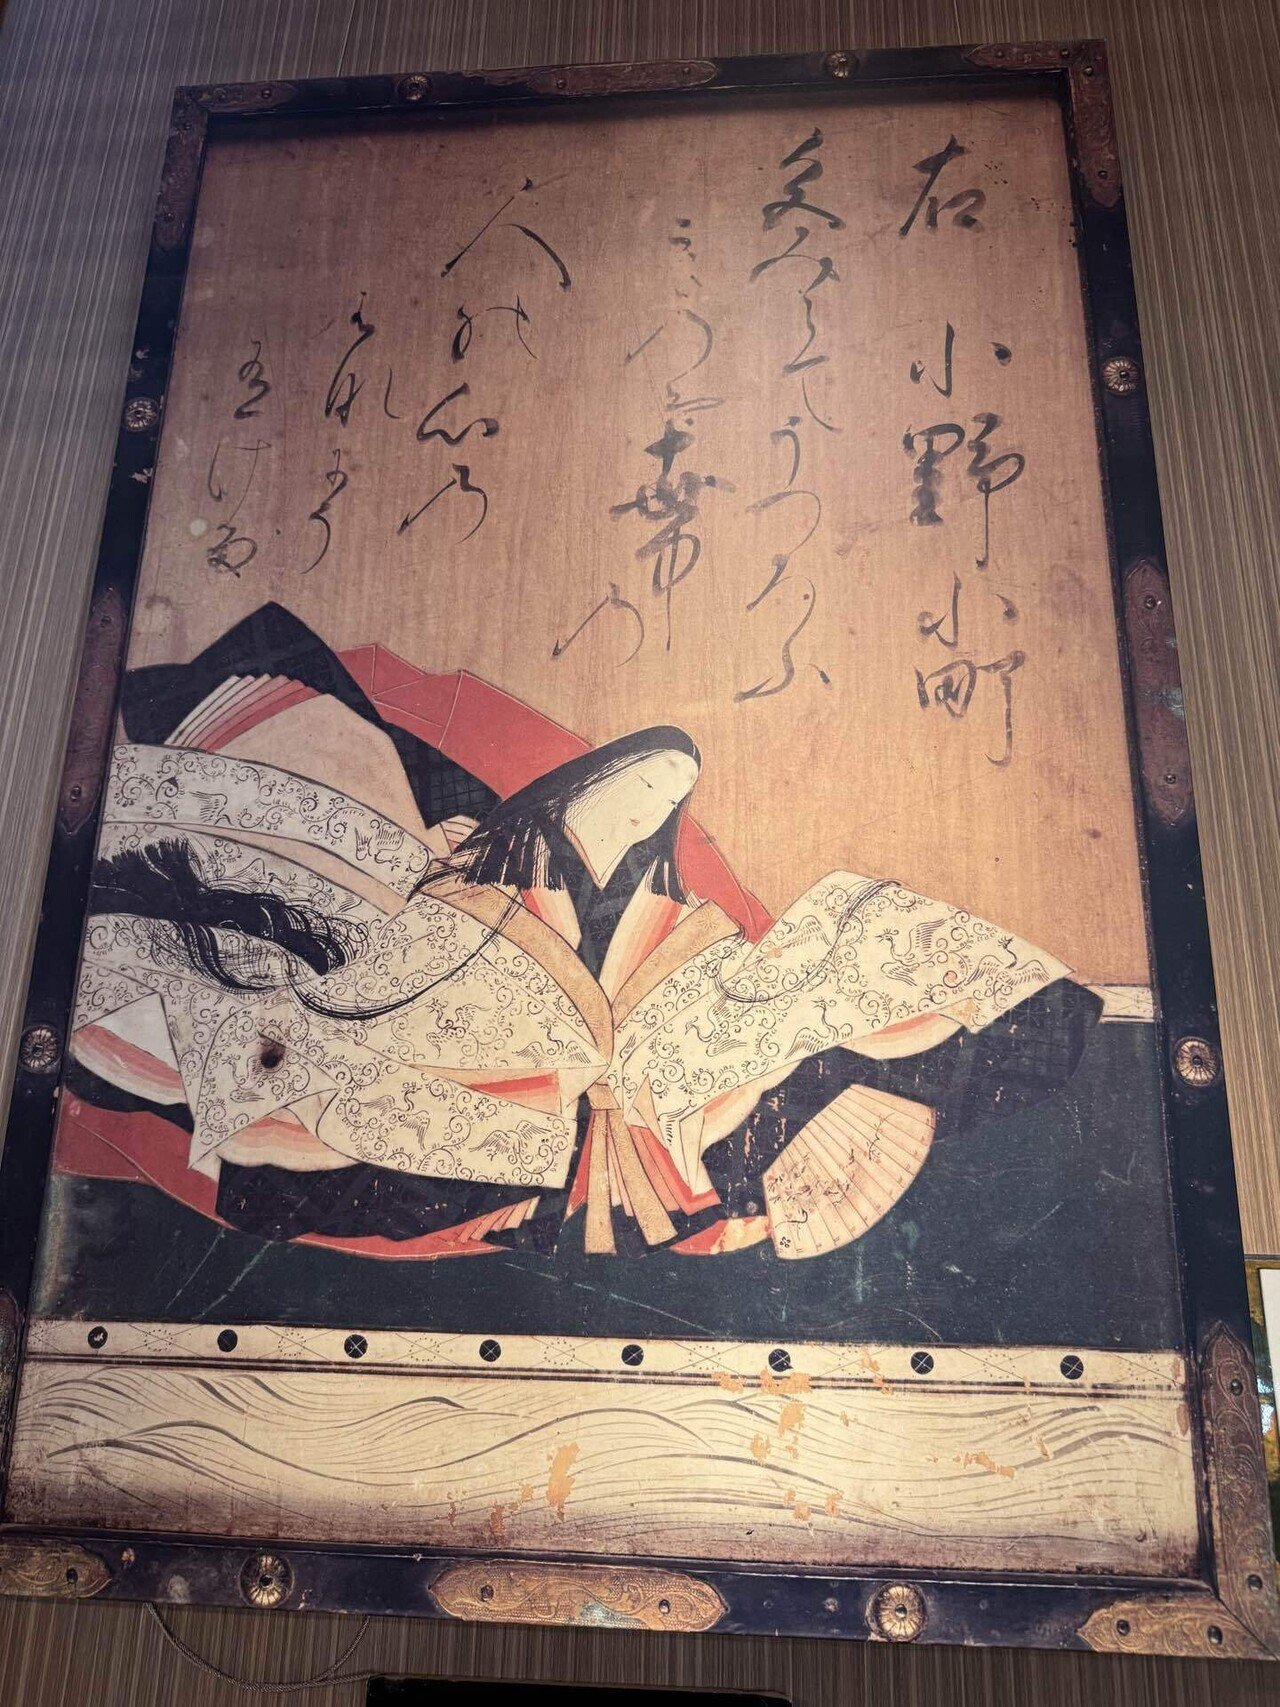 右 小野小町
色みえてうつろふ
ものは世中の
人の心の
はなにそ
有ける